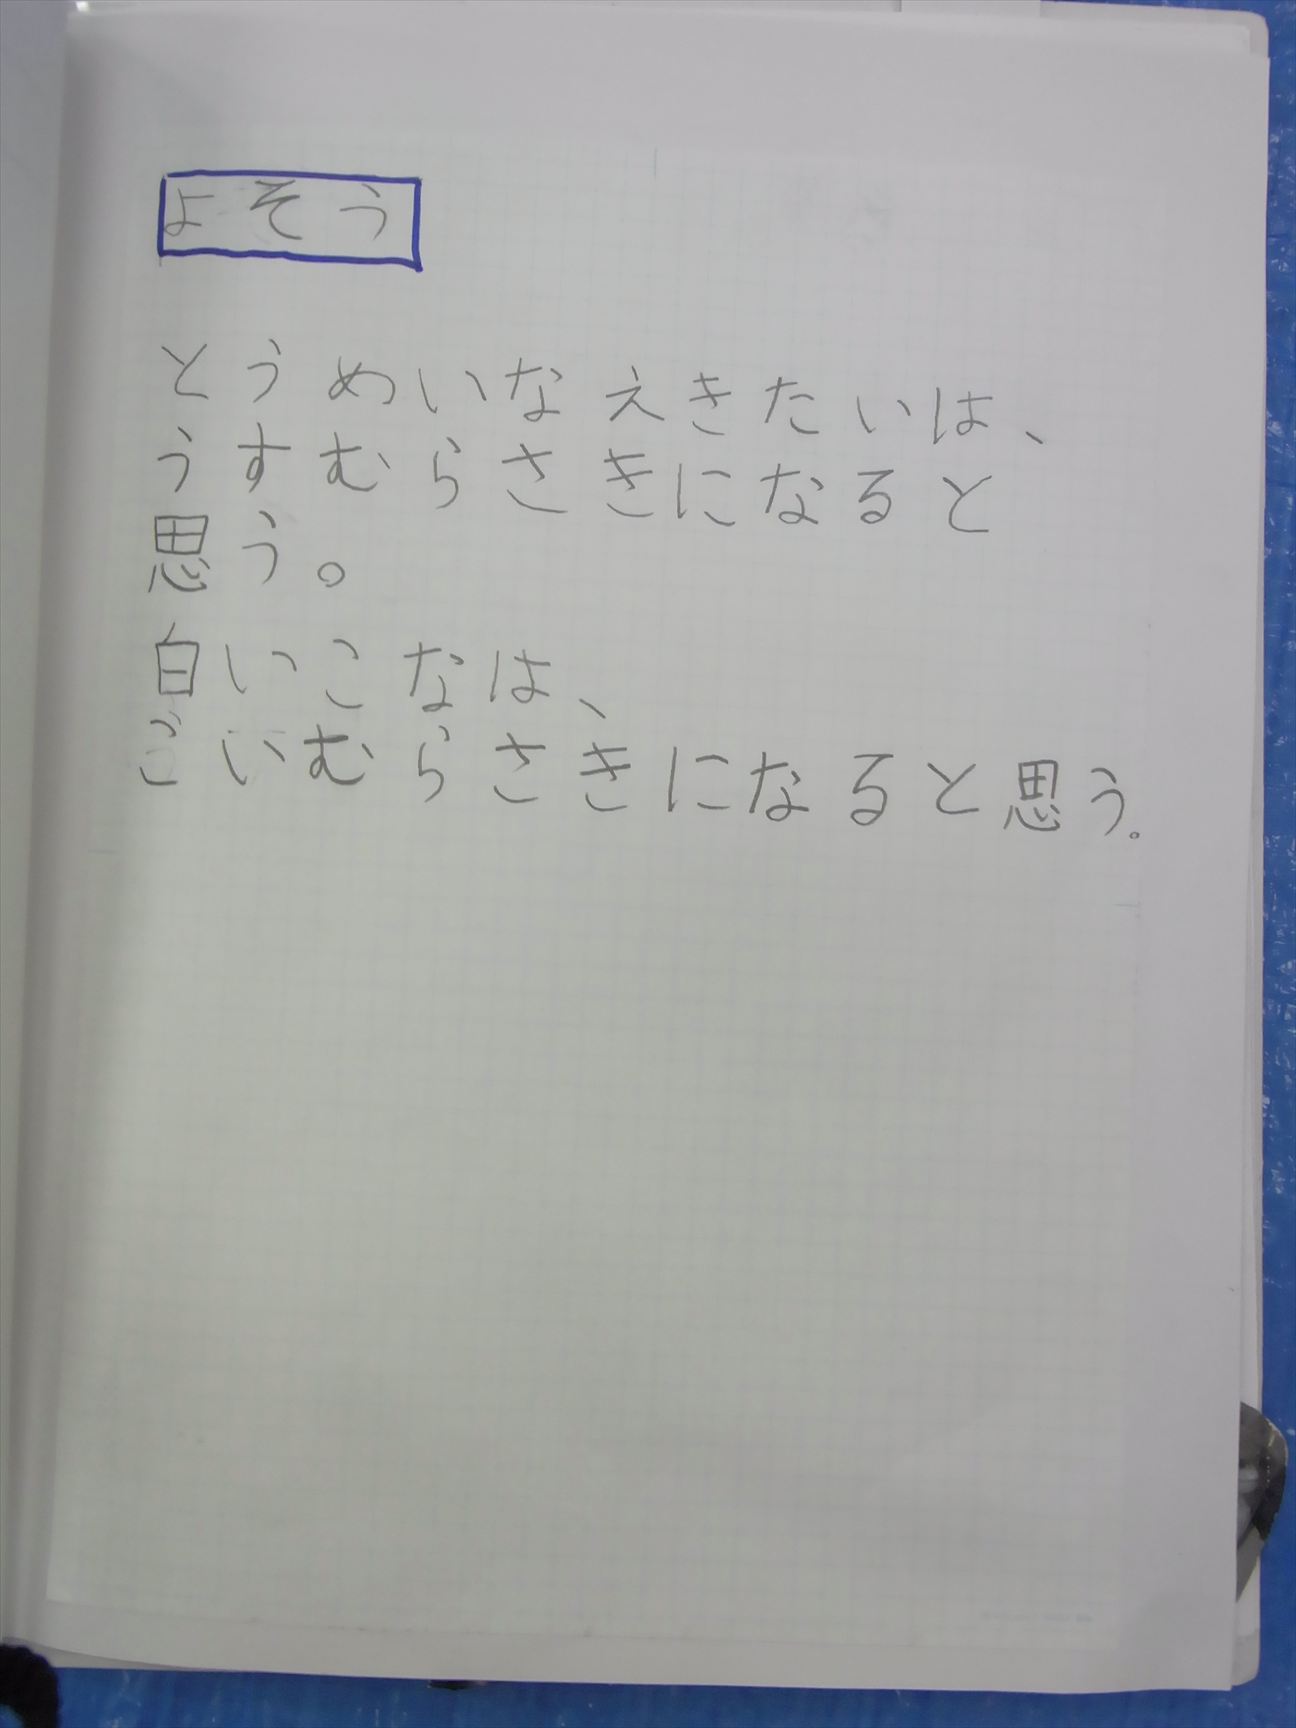 よそう
とうめいなえきたいは、
うすむらさきになると
思う。
白いこなは、
こいむらさきになると思う。